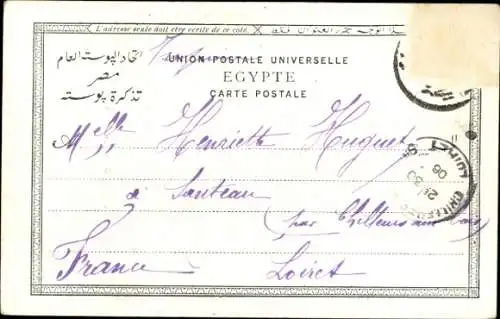 L'adresse seule doit être écrite de ce côté.
اتحاد البوستة العام
مصر
تذكرة بوستة
UNION POSTALE UNIVERSELLE
EGYPTE
CARTE POSTALE
Melle Henriette Huguet
à Santeau
par Chilleurs aux Bois
France Loiret
LOIRET